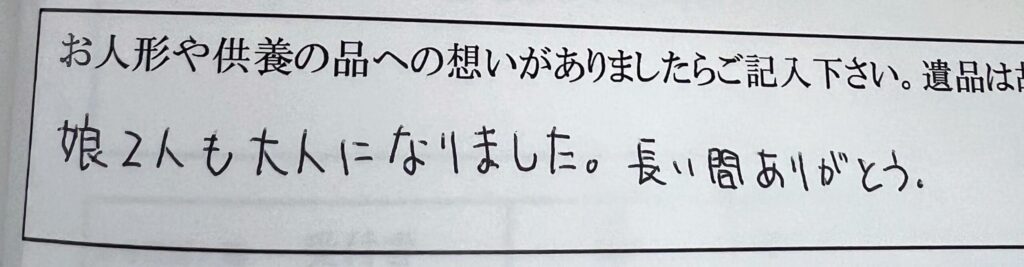 お人形や供養の品への想いがありましたらご記入下さい。遺品は故
娘2人も大人になりました。長い間ありがとう.